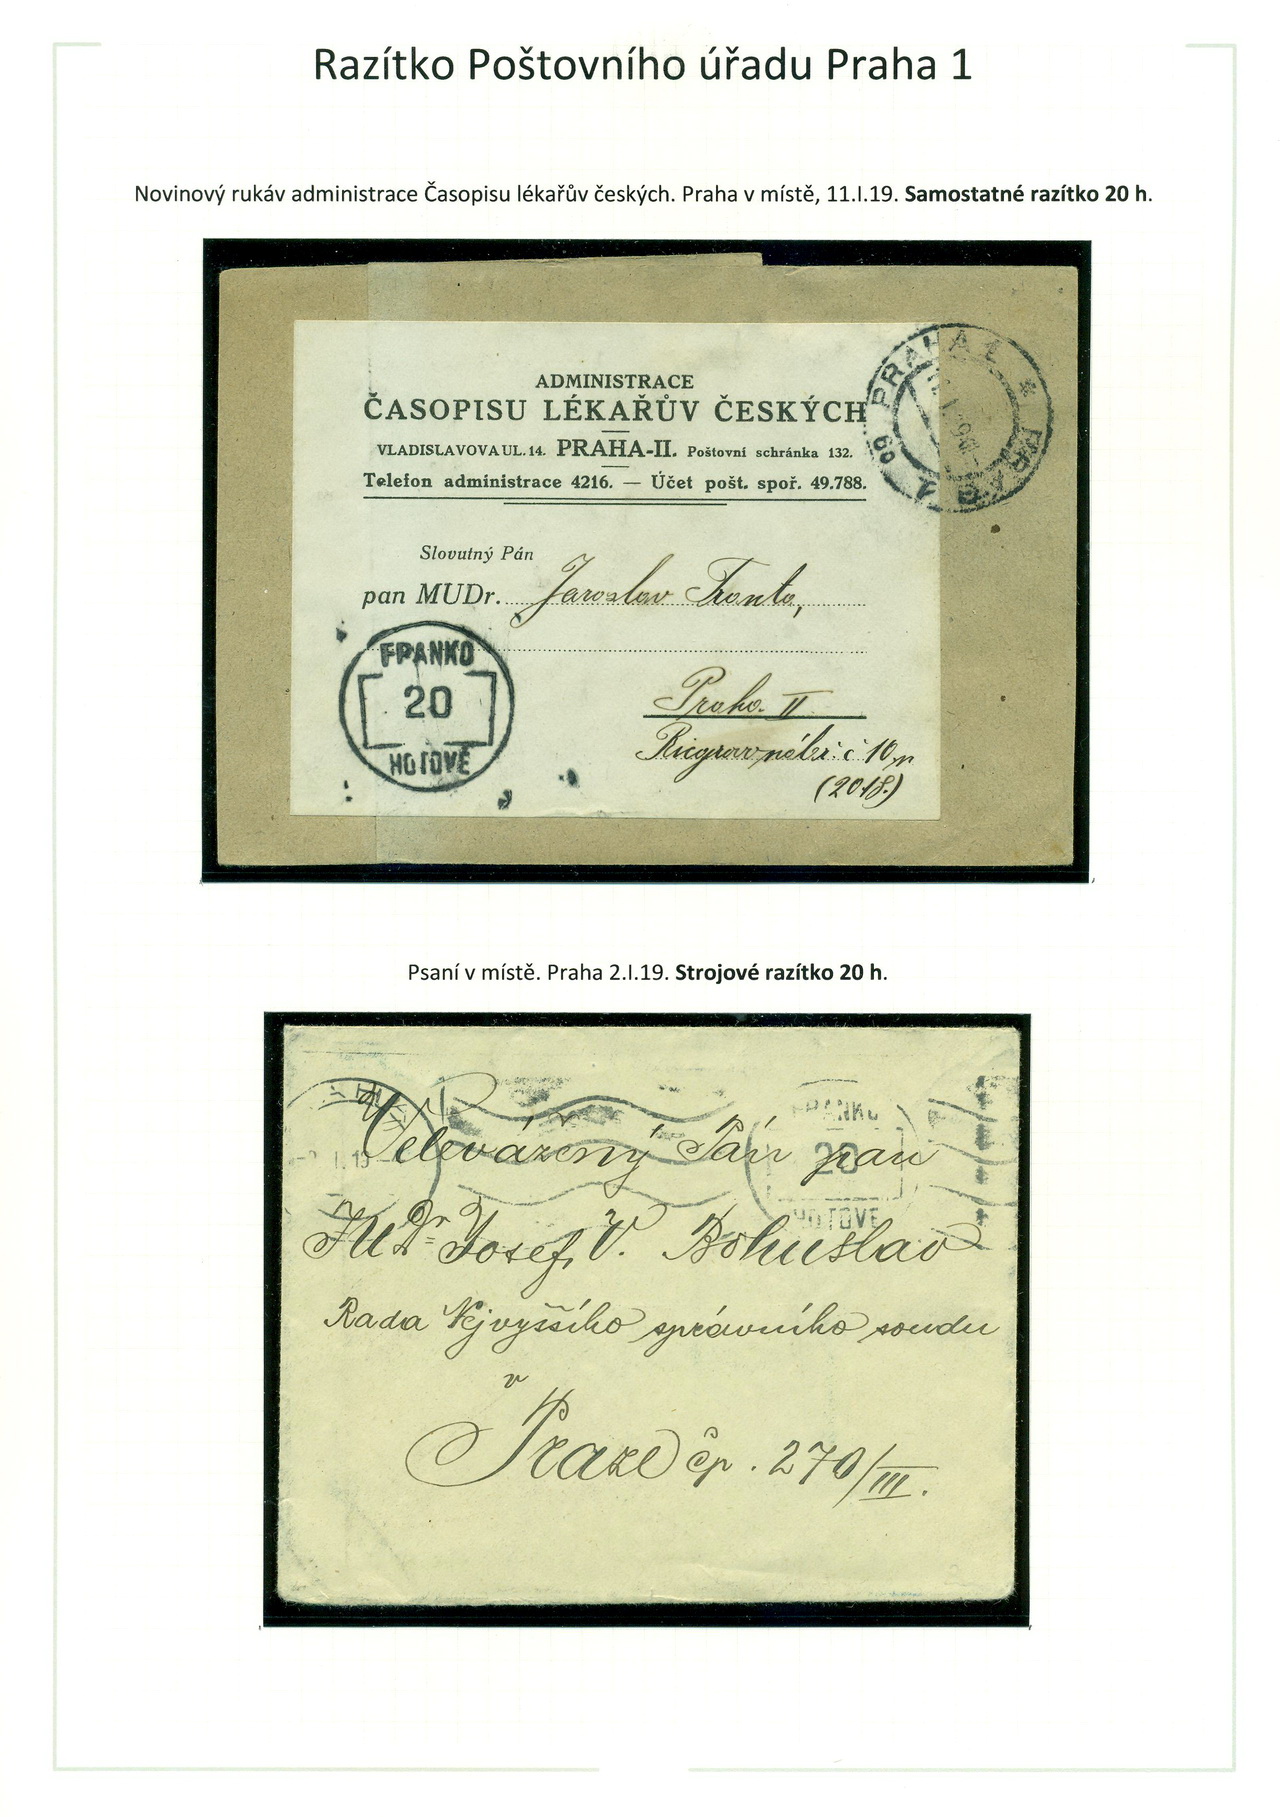 Razítko Poštovního úřadu Praha 1
Novinový rukáv administrace Časopisu lékařův českých. Praha v místě, 11.I.19. Samostatné razítko 20 h.
ADMINISTRACE
ČASOPISU LÉKAŘŮV ČESKÝCH
VLADISLAVOVA UL. 14. PRAHA-II. Poštovní schránka 132.
Telefon administrace 4216. — Účet pošt. spoř. 49.788.
PRAHA 1 * PRAG 1
Slovutný Pán
pan MUDr. Jaroslav
FRANKO
20
HOTOVĚ
Praha II
nábř. č 10n
(2018.)
Psaní v místě. Praha 2.I.19. Strojové razítko 20 h.
FRANKO
20
HOTOVĚ
2. I. 19
Velevážený Pán pan
JUDr Josef V. Bohuslav
Rada Nejvyššího správního soudu
v
Praze čp. 270/III.